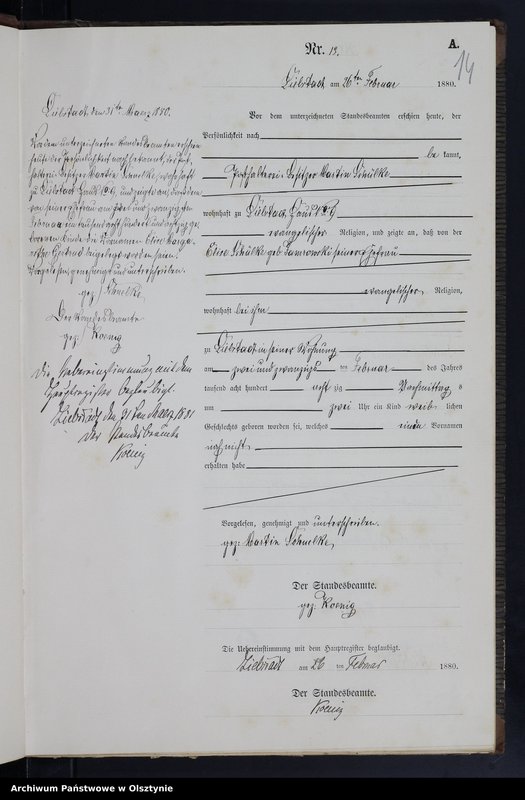 Nr. 13.
A.
14
Liebstadt am 26ten Februar 1880.
Vor dem unterzeichneten Standesbeamten erschien heute, der
Persönlichkeit nach
be kannt,
Posthalterei-Besitzer Martin Schulke
wohnhaft zu Liebstadt, Haus
evangelischer Religion, und zeigte an, daß von der
Schulke geb. seiner Ehefrau
evangelischer Religion,
wohnhaft bei ihm
zu Liebstadt in seiner Wohnung
am zwei und zwanzigsten Februar des Jahres
tausend acht hundert acht zig Vormittag s
um zwei Uhr ein Kind weib lichen
Geschlechts geboren worden sei, welches einen Vornamen
noch nicht
erhalten habe
Vorgelesen, genehmigt und unterschrieben.
gez: Martin Schulke,
Der Standesbeamte.
gez: Koenig
Die Uebereinstimmung mit dem Hauptregister beglaubigt.
Liebstadt am 26 ten Februar 1880.
Der Standesbeamte.
Koenig
Liebstadt, den 31ten Maerz 1880.
Vor dem unterzeichneten Standesbeamten erschien
heute der Persönlichkeit nach bekannt, der Post-
halterei-Besitzer Martin Schulke, wohnhaft
zu Liebstadt Haus und zeigte an, daß dem
von seiner Ehefrau am zwei und zwanzigsten
Februar tausend acht hundert und achtzig ge-
borenen Kinde die Vornamen
Gertrud beigelegt worden seien.
Vorgelesen, genehmigt und unterschrieben.
gez. Schulke,
Der Standesbeamte
gez. Koenig
Die Uebereinstimmung mit dem
Hauptregister beglaubigt.
Liebstadt den 31ten Maerz
Der Standesbeamte
Koenig
Archiwum Państwowe w Olsztynie